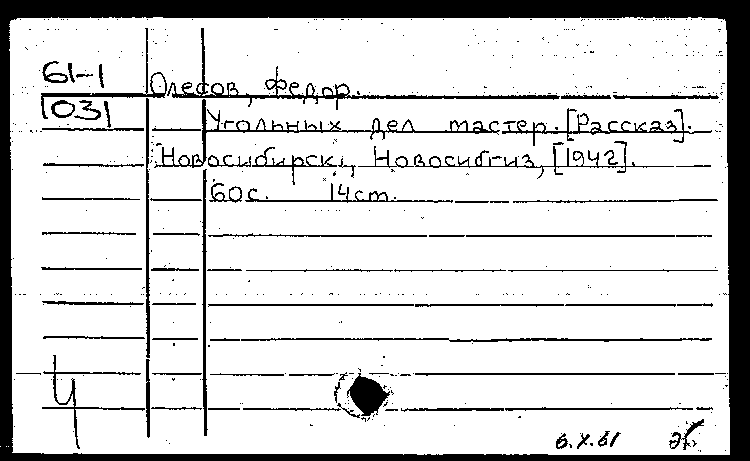 61-1
Олесов, Федор.
1031
Угольных дел мастер. [Рассказ].
Новосибирск, Новосибгиз, [1942].
60с. 14ст.
Ч
6.X.61